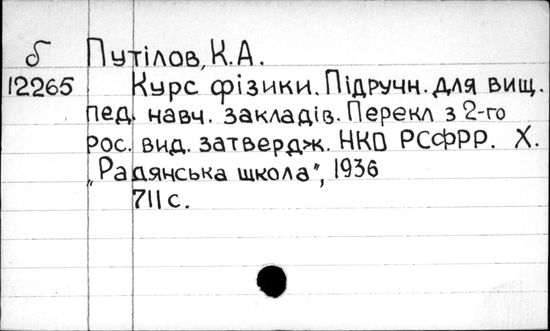 б Путілов, К.А.
12265 Курс фізики. Підручн. для вищ.
пед. навч. закладів. Перекл з 2-го
рос. вид. затвердж. НКО РСФРР. Х.
„Радянська школа", 1936
711 с.